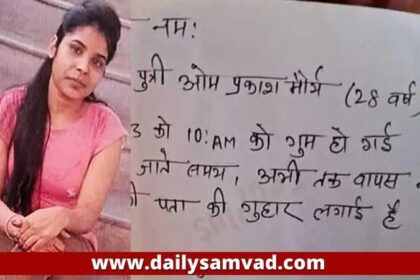 नम:
पुत्री ओम प्रकाश मौर्य (28 वर्ष)
3 को 10:AM को गुम हो गई
जाते समय, अभी तक वापस
पता की गुहार लगाई है
www.dailysamvad.com